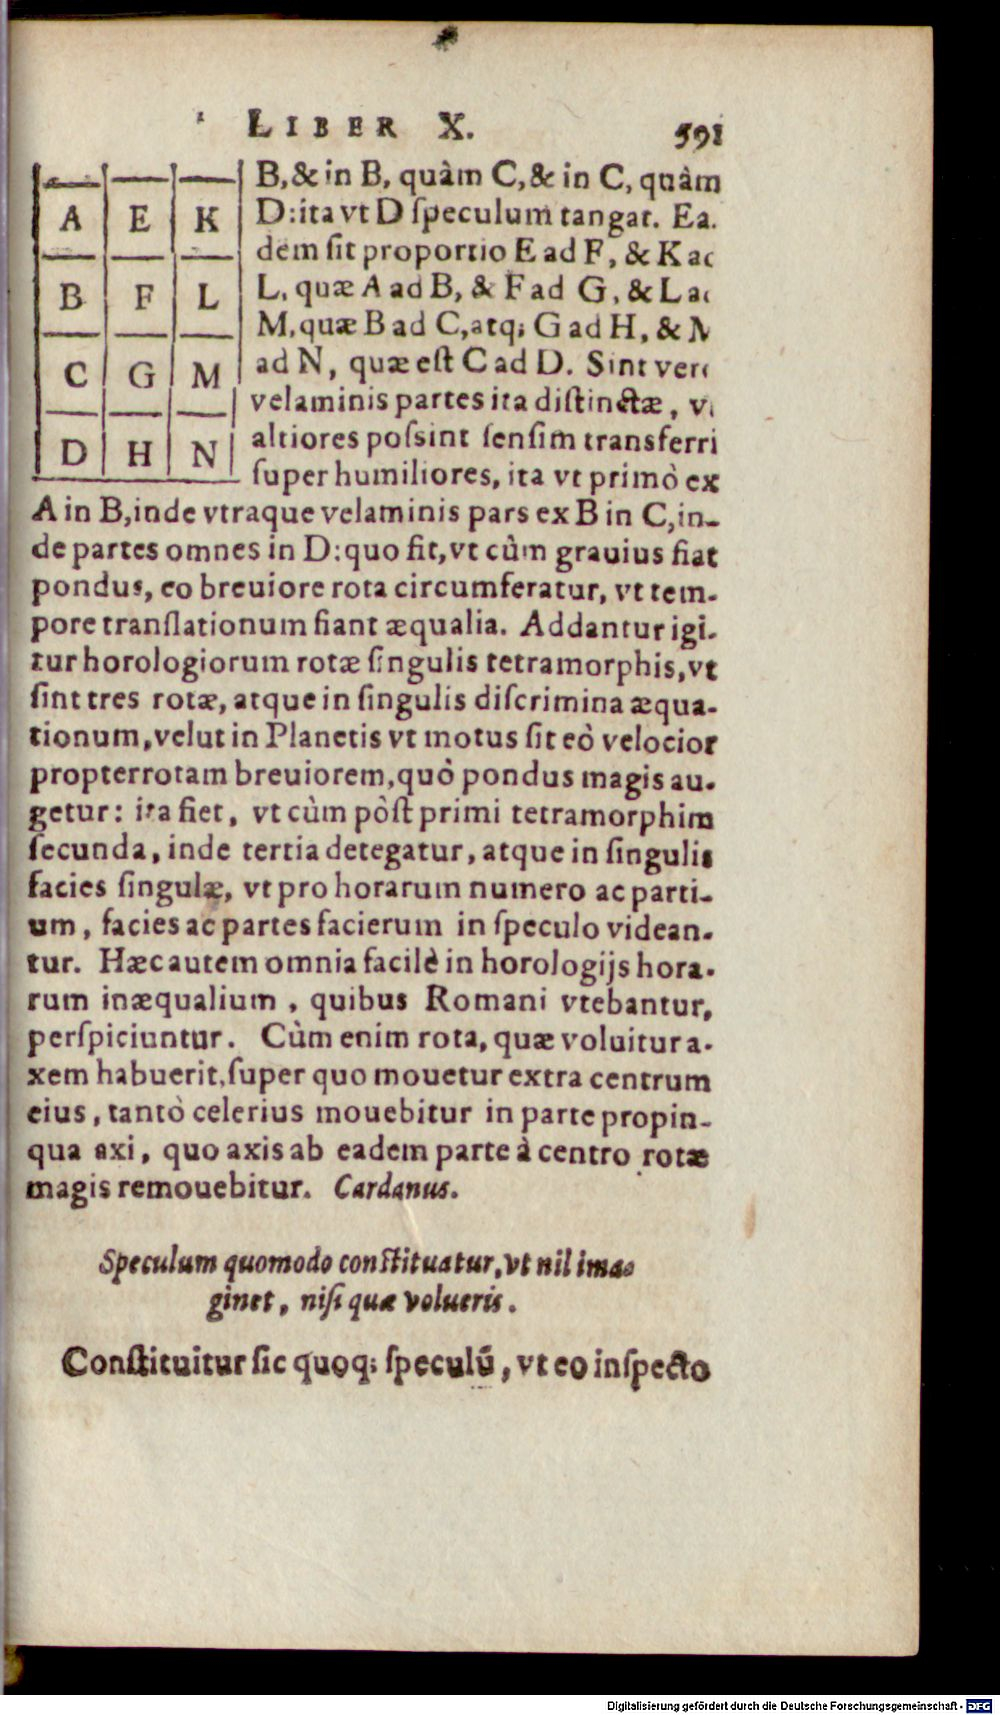 LIBER X. 591
A E K
B F L
C G M
D H N
B, & in B, quàm C, & in C, quàm
D: ita vt D ſpeculum tangat. Ea.
dem ſit proportio E ad F, & K ad
L, quæ A ad B, & F ad G, & L ad
M, quæ B ad C, atq; G ad H, & M
ad N, quæ eſt C ad D. Sint vero
velaminis partes ita diſtinctæ, vt
altiores poſsint ſenſim transferri
ſuper humiliores, ita vt primò ex
A in B, inde vtraque velaminis pars ex B in C, in-
de partes omnes in D: quo fit, vt cùm grauius fiat
pondus, eo breuiore rota circumferatur, vt tem-
pore translationum fiant æqualia. Addantur igi-
tur horologiorum rotæ ſingulis tetramorphis, vt
ſint tres rotæ, atque in ſingulis diſcrimina æqua-
tionum, velut in Planetis vt motus ſit eò velocior
propter rotam breuiorem, quò pondus magis au-
getur: ita fiet, vt cùm pòſt primi tetramorphim
ſecunda, inde tertia detegatur, atque in ſingulis
facies ſingulæ, vt pro horarum numero ac parti-
um, facies ac partes facierum in ſpeculo videan-
tur. Hæc autem omnia facilè in horologijs hora-
rum inæqualium, quibus Romani vtebantur,
perſpiciuntur. Cùm enim rota, quæ voluitur a-
xem habuerit, ſuper quo mouetur extra centrum
eius, tantò celerius mouebitur in parte propin-
qua axi, quo axis ab eadem parte à centro rotæ
magis remouebitur. Cardanus.
Speculum quomodo conſtituatur, vt nil ima-
ginet, niſi quæ volueris.
Conſtituitur ſic quoq; ſpeculū, vt eo inſpecto
Digitalisierung gefördert durch die Deutsche Forschungsgemeinschaft - DFG